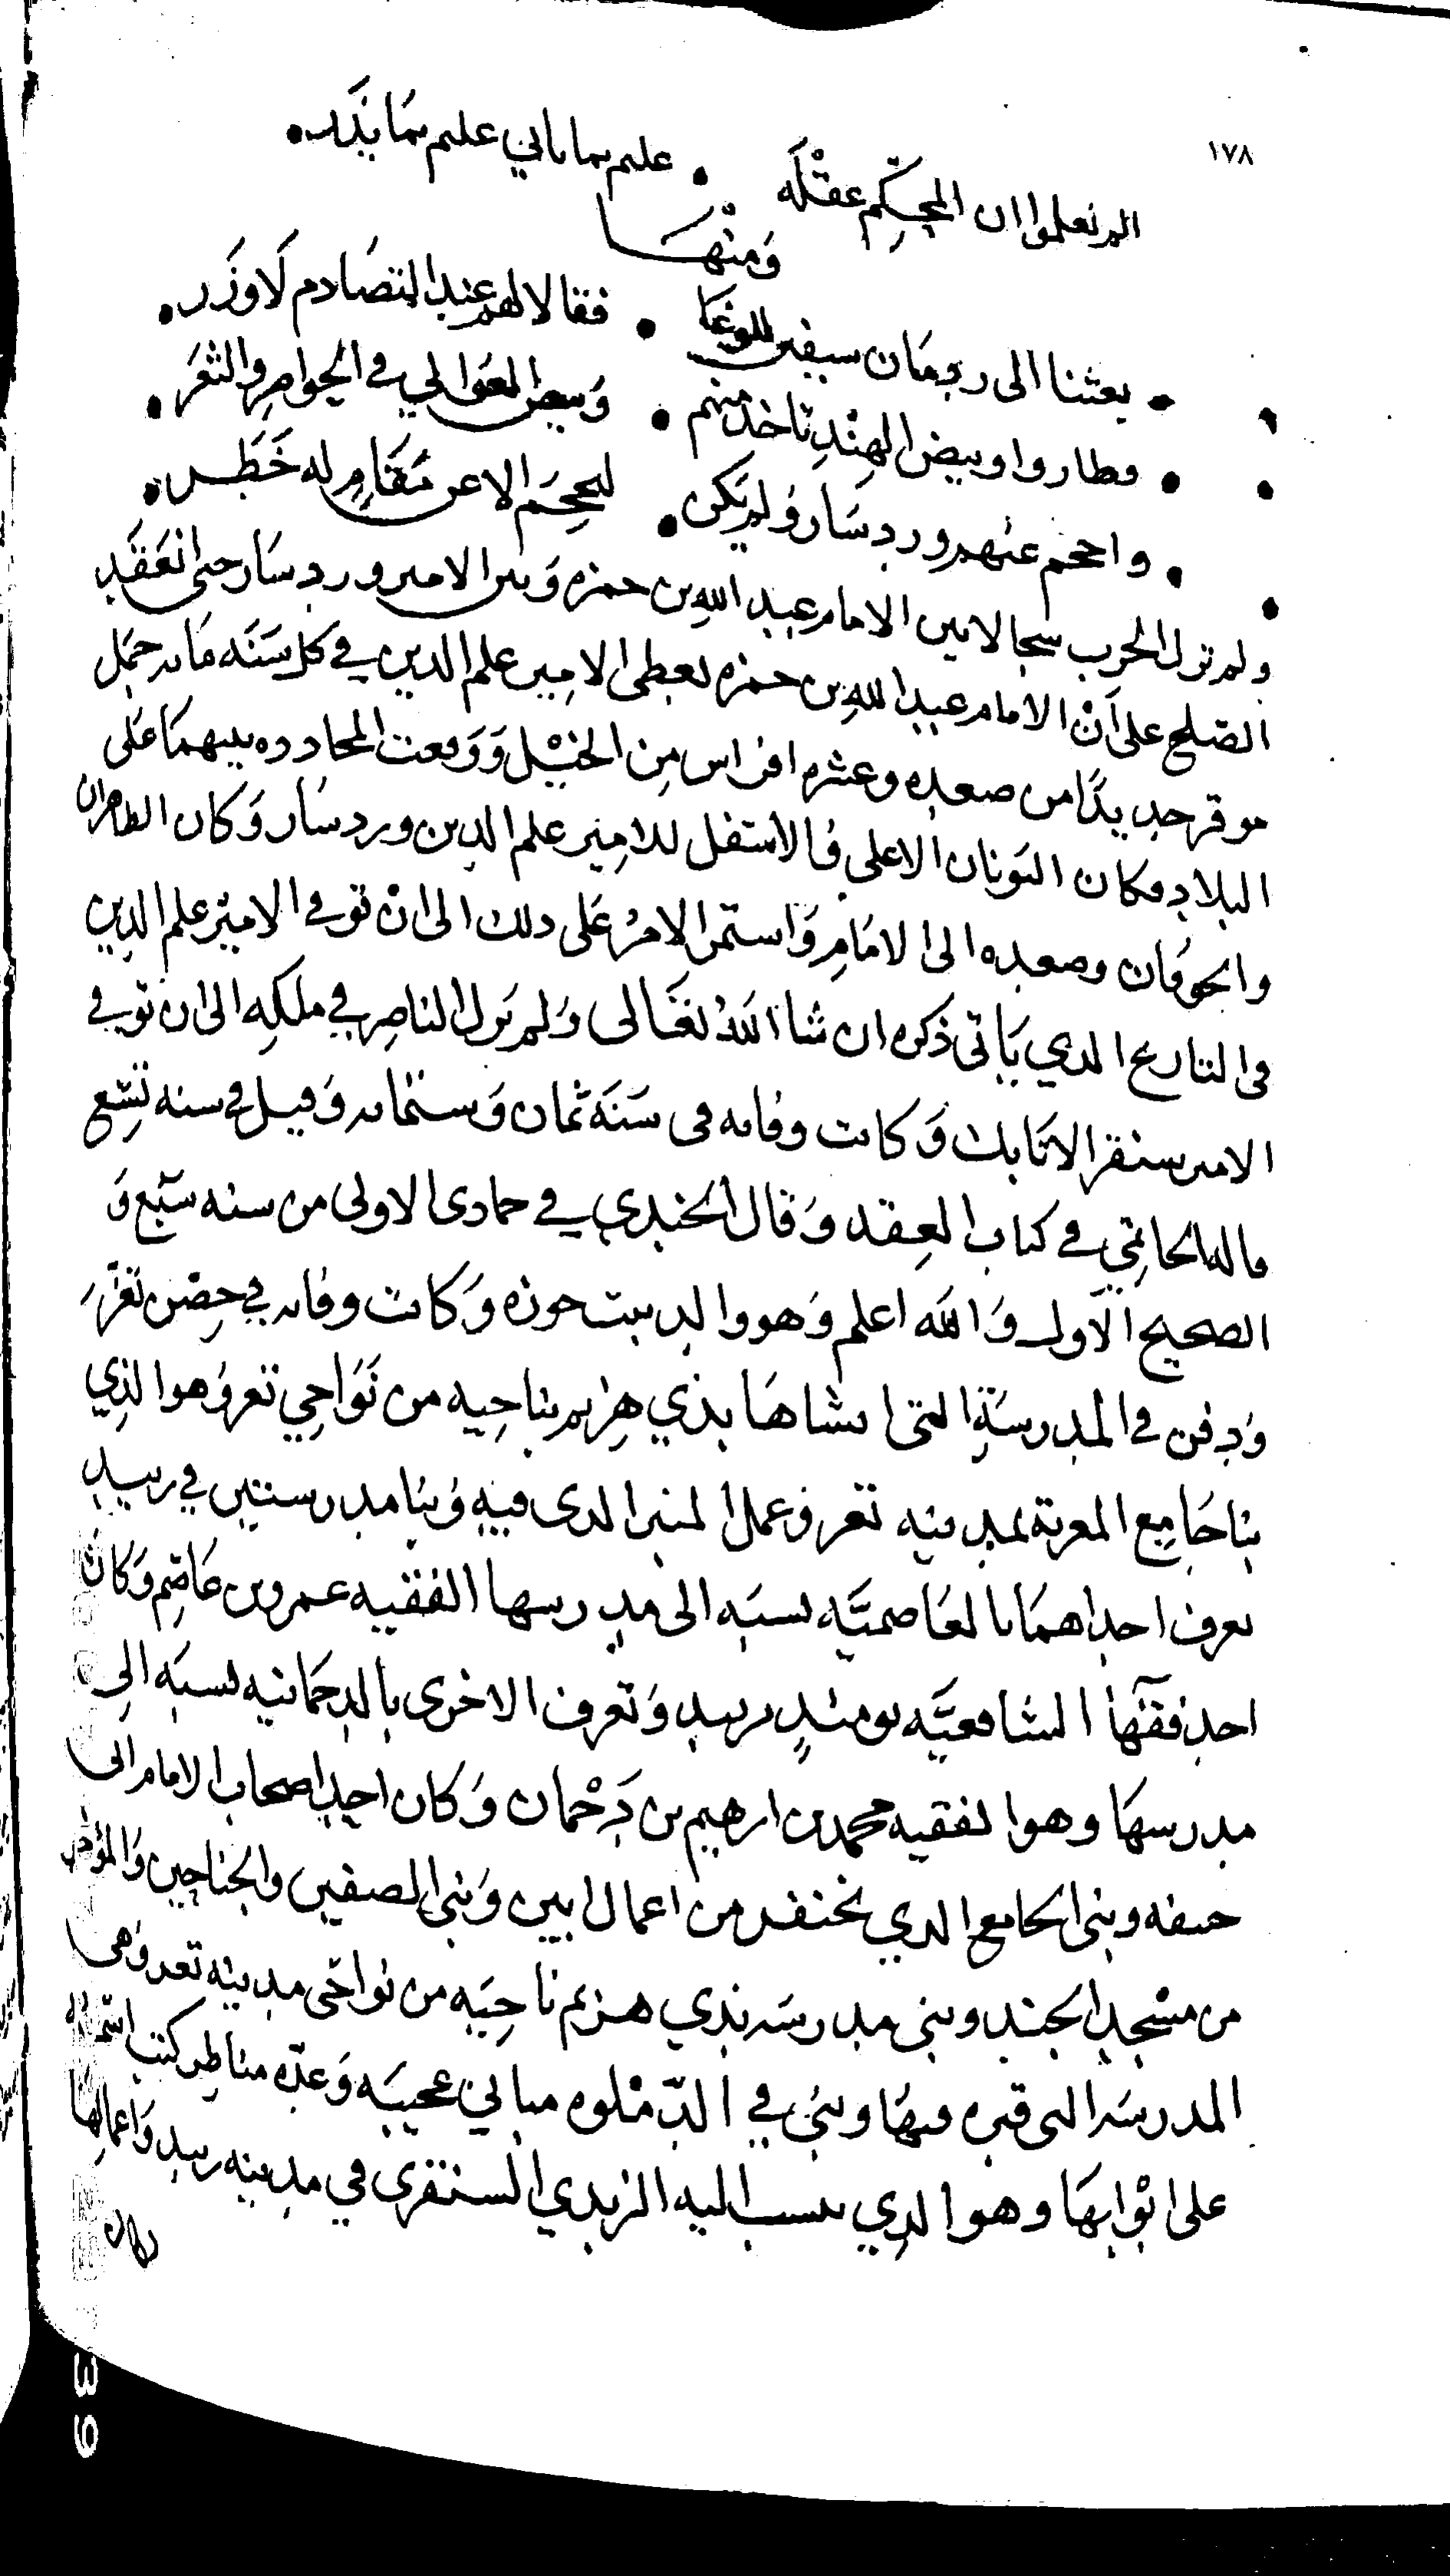 ١٧٨
الم تعلموا ان المحكم عقله • عليم بما ياتي عليم بما يذر •
ومنها
• بعثنا الى ردمان سيفين للوغا • فقالا لهم عند التصادم لا وزر •
• وطاروا وبيض الهند تاخذ منهم • وبيض العوالي في الحواصر والثغر •
• واحجم عنهم وردسار ولم يكن • ليحجم الا عن مقام له خطر •
ولم تزل الحرب سجالا بين الامام عبد الله بن حمزه وبين الامير وردسار حتى انعقد
الصلح على ان الامام عبد الله بن حمزه يعطى الامير علم الدين في كل سنه مايه حمل
موقر حديدا من صعده وعشره افراس من الخيل ووقعت المحادده بينهما على
البلاد فكان البونان الاعلى والاسفل للامير علم الدين وردسار وكان الظاهران
والجوفان وصعده الى الامام واستمر الامر على ذلك الى ان توفي الامير علم الدين
في التاريخ الذي ياتي ذكره ان شا الله تعالى ولم يزل الناصر في ملكه الى ان توفي
الامير سنقر الاتابك وكانت وفاته في سنة ثمان وستمايه وقيل في سنه تسع
قاله الحاتمي في كتاب العقد وقال الجندي في جمادى الاولى من سنه سبع و
الصحيح الاول والله اعلم وهو والد بيت حوزه وكانت وفاته في حصن تعز
ودفن في المدرسة التي انشاها بذي هزيم بناحيه من نواحي تعز وهو الذي
بنا جامع المعربة بمدينه تعز وعمل المنبر الذي فيه وبنا مدرستين في زبيد
تعرف احداهما بالعاصميه نسبه الى مدرسها الفقيه عمرو بن عاصم وكان
احد فقها الشافعيه يومئذ بزبيد وتعرف الاخرى بالدحمانيه نسبه الى
مدرسها وهو الفقيه محمد بن ابرهيم بن دحمان وكان احد اصحاب الامام ابي
حنيفه وبنى الجامع الذي بخنفر من اعمال ابين وبنى الصفين والجناحين والمؤخر
من مسجد الجند وبنى مدرسه بذي هزيم ناحيه من نواحي مدينه تعز وهي
المدرسه التي قبره فيها وبنى في الدملوه مباني عجيبه وعده مناظر كتب اسمه
على ابوابها وهو الذي ينسب اليه الزبدي السنقري في مدينه زبيد واعمالها